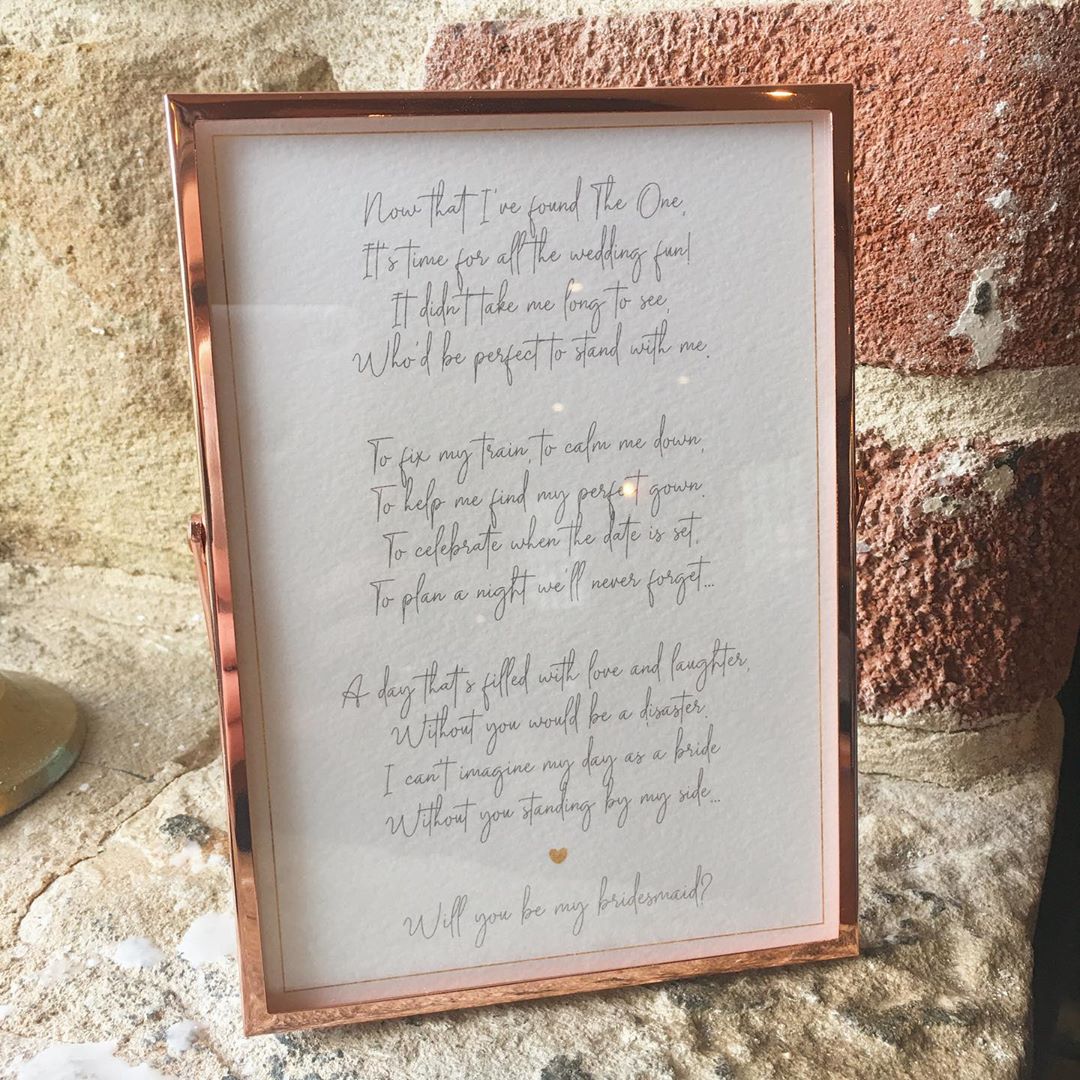 Now that I've found The One,
It's time for all the wedding fun!
It didn't take me long to see,
Who'd be perfect to stand with me.
To fix my train, to calm me down,
To help me find my perfect gown.
To celebrate when the date is set,
To plan a night we'll never forget...
A day that's filled with love and laughter,
Without you would be a disaster.
I can't imagine my day as a bride
Without you standing by my side...
Will you be my bridesmaid?